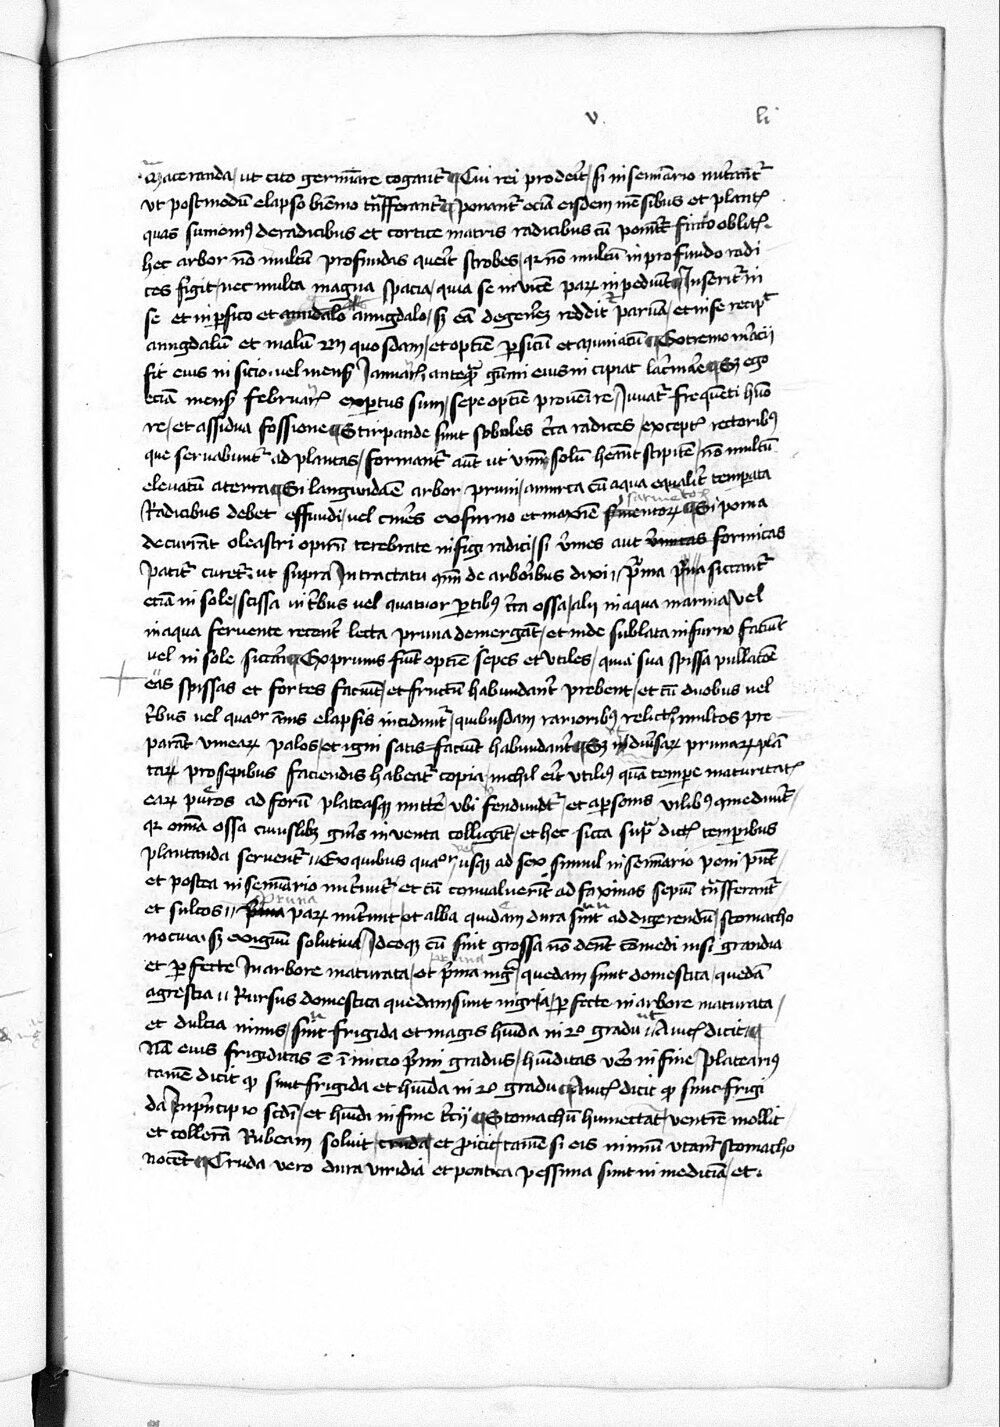 v. li
maceranda / ut cito germīare cogantᷣ ¶ Cui rei prodeīt / si in semīario mītantᷣ
ut postmodū elapso biēnio trāsferantᷣ ¶ ponantᷣ eciā eisdem mēsibus et plantꝭ
quas sumemꝰ de radicibus et cortice matris radicibus cū ponūtᷣ fimo oblitꝭ.
hec arbor nō multū profundas querit scrobes / qꝛ nō multū in profundo radi
ces figit / nec multa magna spacia / quia se in vicē parꝝ inpediūt ¶ Inseritᷣ in
se et in ꝑsico et amigdalo / sꝫ eā degenerē reddit parūā / et in se recipit
amigdalū et malū quosdam / et optīe ꝑsicū et ¶ Extremo mācii
fit eius insicio. vel mensꝭ Januarꝭ anteqꝫ gūmi eius incipiat lacrimare ¶ Sꝫ ego
eciā mensꝭ februarꝭ expertus sum / sepe optīe prouenire / Juuatᷣ frequēti humo
re / et assidua fossione ¶ Stirpande sunt soboles circa radices / exceptꝭ rectoribꝰ
que seruabuntᷣ ad plantas / formantᷣ aūt ut vnū solū heant stipitē / nō multū
eleuatū a terra ¶ Si languida ē arbor pruni / amurca cū aqua equalit tempata
Radicibus debet effundi / vel cineres ex furno et maxīe sarmentoꝝ ¶ Si poma
decurrāt oleastri opꝫ terebrate infigi radici / si vermes aut formicas
patitᷣ curetᷣ. ut supra in tractatu de arboribus dixi .. pruna siccantᷣ
eciā in sole / scissa in tribus vel quatuor ꝑtibꝰ circa ossa / alii in aqua marina / vel
in aqua feruente recent lecta pruna demergāt / et inde sublata in furno faciūt
vel in sole siccari ¶ Ex prunis fiūt optīe sepes et vtiles / quia sua spissa pullacōe
eas spissas et fortes faciūt / et fructū habundant prebent / et cū duobus vel
tribus vel quaᵒr annis elapsis incidūtᷣ / quibusdam rarioribꝰ relictꝭ / multos pre
parāt vinearꝝ palos / et igni satis faciūt habundant ¶ Sꝫ ut diuersarꝝ prunarꝝ plā
tarꝝ pro sepibus faciendis habeatᷣ copia / nichil erit vtiliꝰ quā tempore maturitatꝭ
earꝝ pueros ad forū plateasqꝫ mittere vbi vendūtᷣ / et a ꝑsonis vilibꝰ comeduntᷣ
qꝛ omīa ossa cuiuslibꝫ gnīs inventa colligāt / et hec sicca supra dictꝭ temporibus
plantanda seruentᷣ .. Ex quibus quaᵒr vel usqꝫ ad sex simul in semīario poni pnt
et postea in semīario nutriūtᷣ et cū conualuerīt ad faxinas sepiū trāsferantᷣ
et sulcos .. pruna parꝝ nutriunt / et alba quidam dura sunt ad digerendū / stomacho
nociua. sꝫ exiguū solutiua / Ideoqꝫ cū sint grossa nō debent comedi nisi grandia
et ꝑfecte in arbore maturata / et pruna nigra / quedam sunt domestica / quedā
agrestia .. Rursus domestica quedam sunt nigra / ꝑfecte in arbore maturata /
et dulcia nimis / sunt frigida et magis humida in 2º gradu ut Auicꝭ dicit ¶
Nā eius frigiditas ē ī inicio primi gradus / humiditas vero in fine / platearius
tamē dicit qꝫ sunt frigida et humida in 2º gradu ¶ Auicꝭ dicit qꝫ sunt frigi
da in principio scdi / et humida in fine tercii ¶ Stomachū humectat / ventrē mollit
et collerā Rubeam soluit / et proicit / tamē si eis nimiū vtatᷣ stomacho
nocēt ¶ Cruda vero dura viridia et pontica pessima sunt in medicina / et.